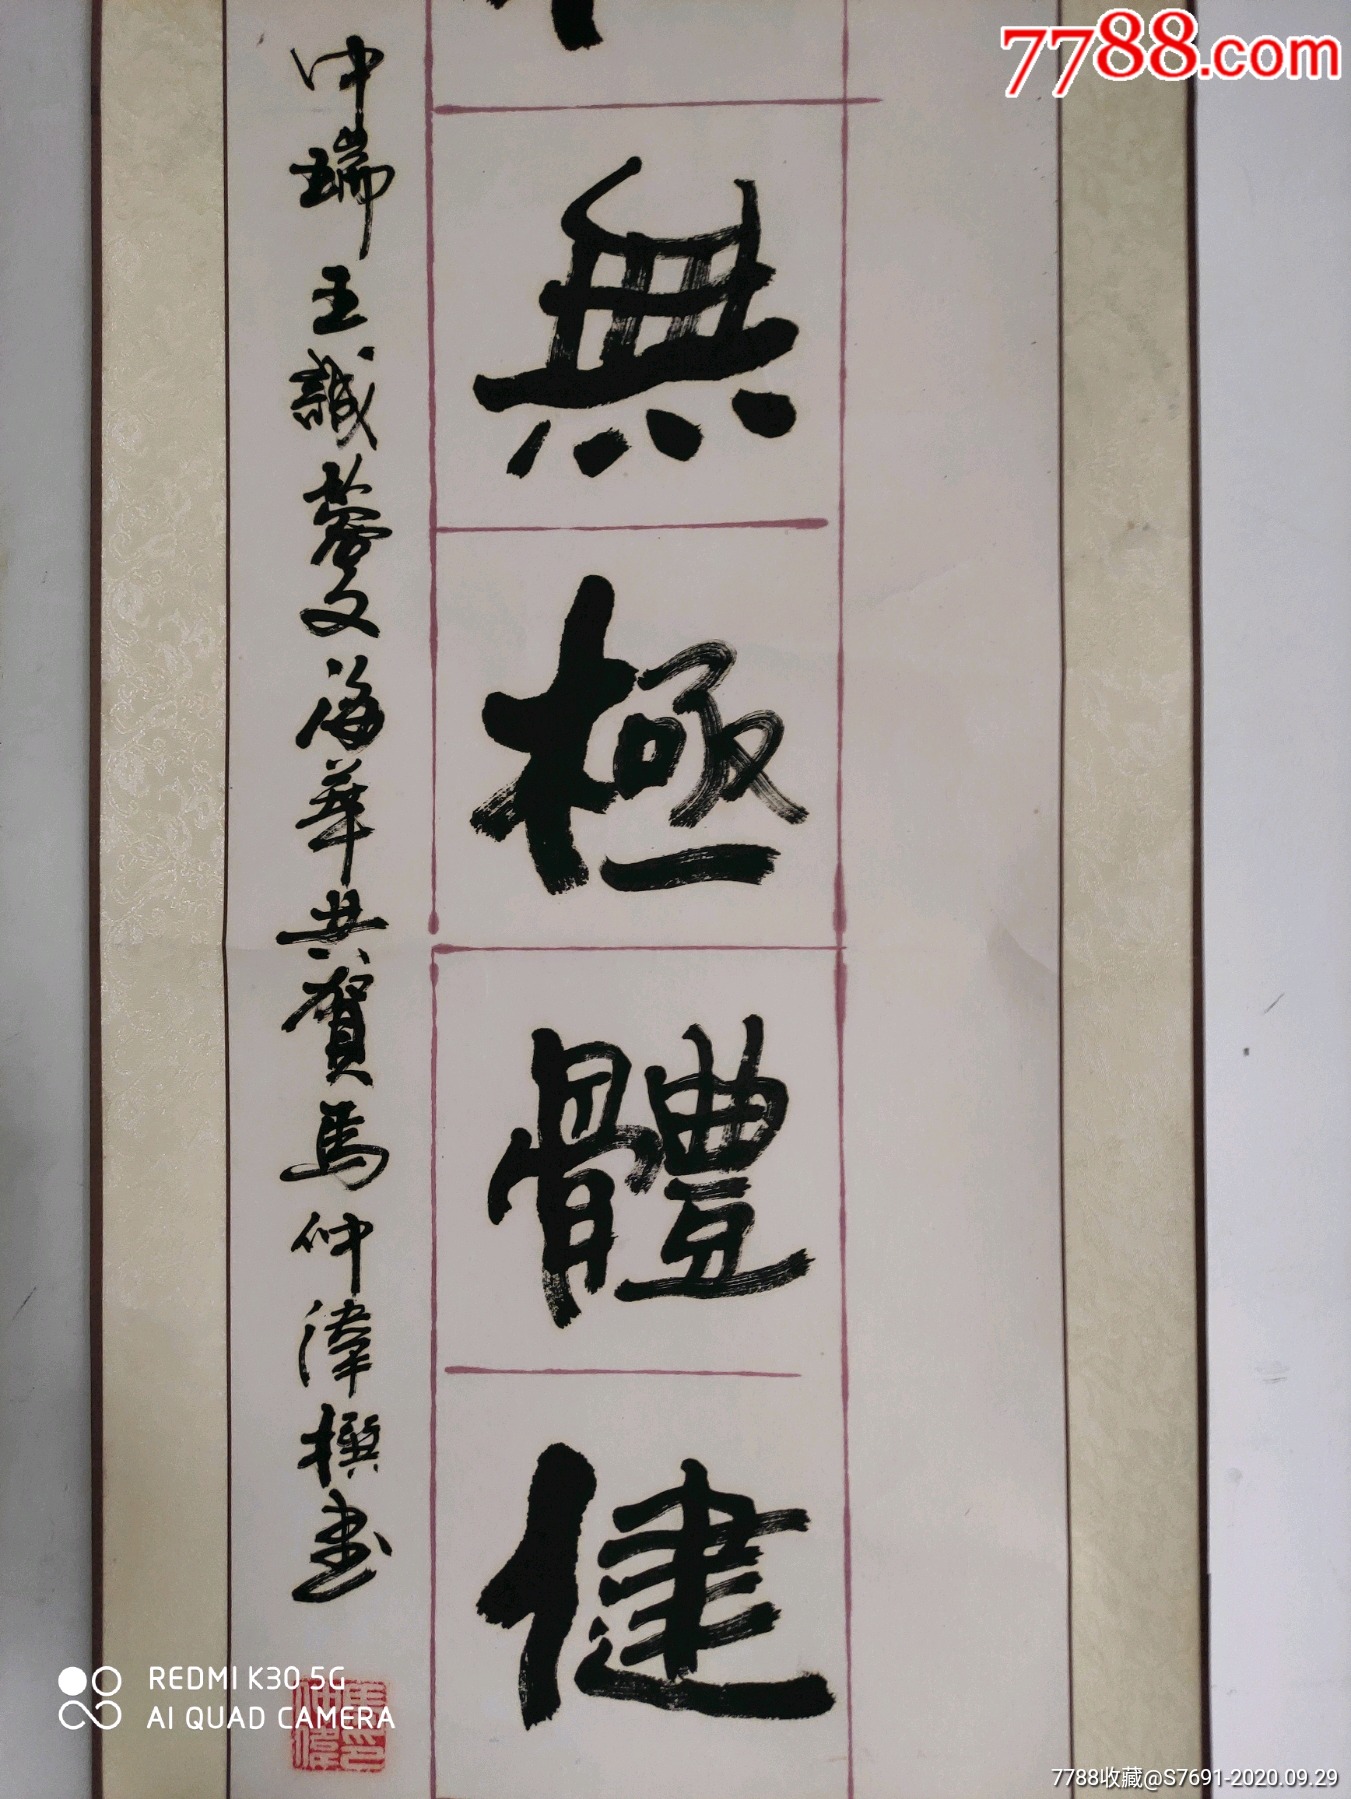 7788.com
無極體健
仲瑞王誠蓉文海華共賀馬仲偉撰書
REDMI K30 5G
AI QUAD CAMERA
7788收藏@S7691-2020.09.29